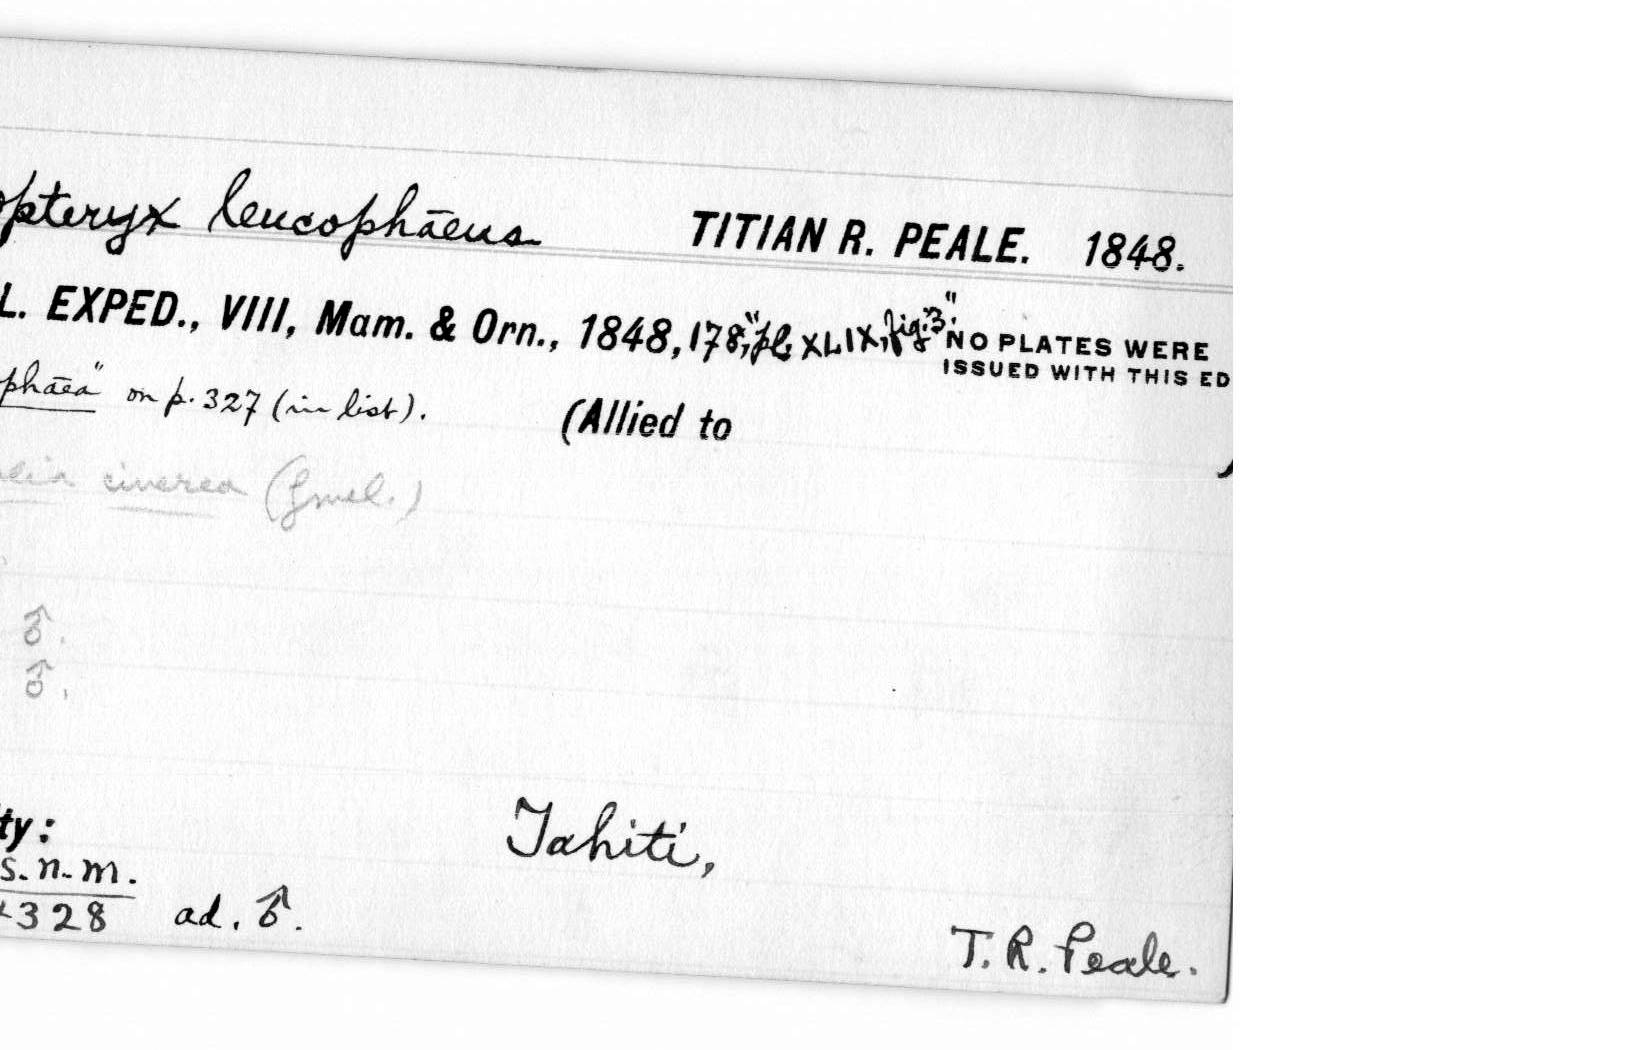 opteryx leucophāeus TITIAN R. PEALE. 1848.
L. EXPED., VIII, Mam. & Orn., 1848, 178, "pl. XLIX, fig. 3." NO PLATES WERE
ISSUED WITH THIS ED
phāea" on p. 327 (in list). (Allied to )
cinerea (Gmel.)
♂.
♂.
ty: Tahiti,
s. n. m.
328 ad. ♂.
T. R. Peale.